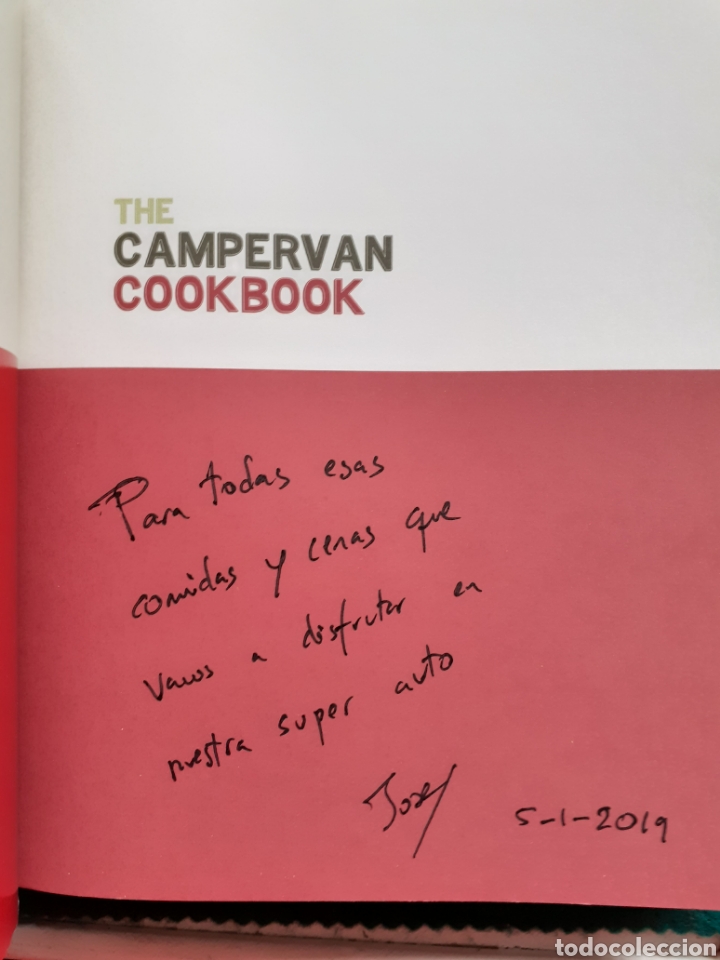 THE
CAMPERVAN
COOKBOOK
Para todas esas
comidas y cenas que
vamos a disfrutar en
nuestra super auto
5-1-2019
todocoleccion